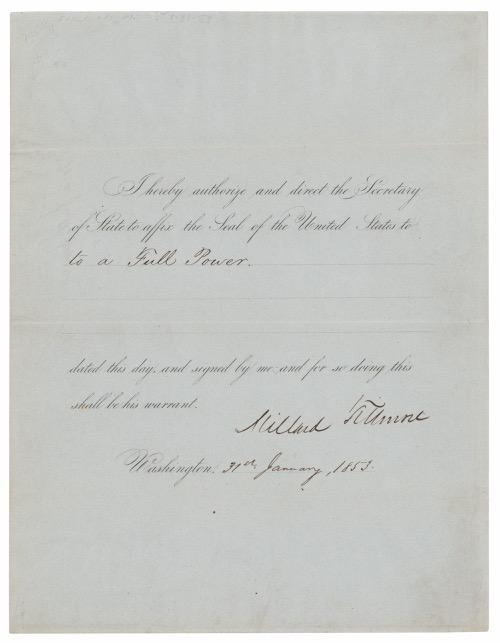 I hereby authorize and direct the Secretary
of State to affix the Seal of the United States to
to a Full Power.
dated this day, and signed by me: and for so doing this
shall be his warrant.
Millard Fillmore
Washington, 31st January, 1853.